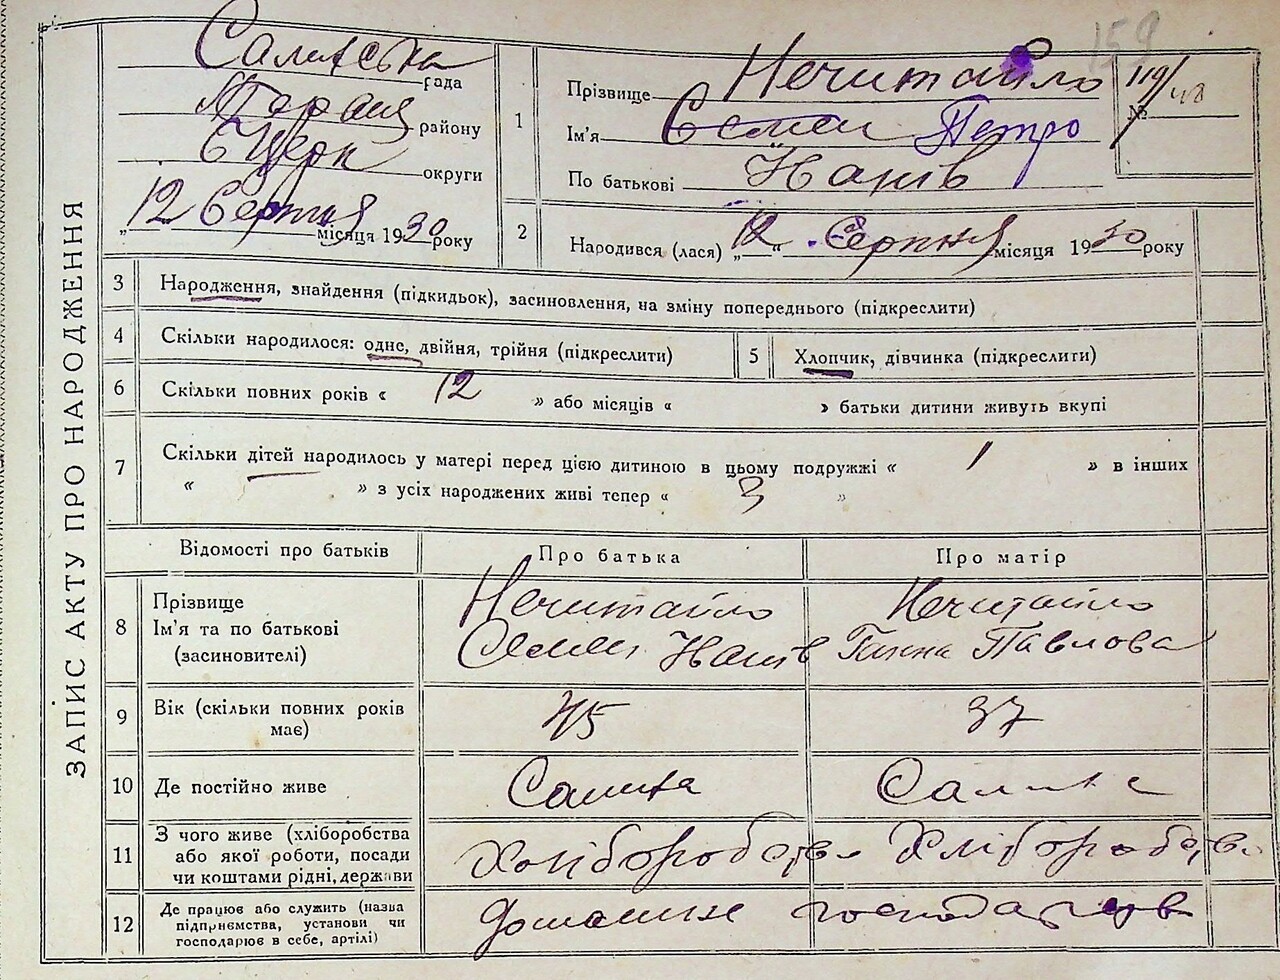 159
Салиська рада
району
БЦерк округи
„12 Серпня місяця 1930 року
1
Прізвище Нечитайло
Ім'я Семен Петро
По батькові Нанів
119/48
№
2
Народився (лася) „12“ Серпня місяця 1930 року
ЗАПИС АКТУ ПРО НАРОДЖЕННЯ
3 Народження, знайдення (підкидьок), засиновлення, на зміну попереднього (підкреслити)
4 Скільки народилося: одне, двійня, трійня (підкреслити)
5 Хлопчик, дівчинка (підкреслити)
6 Скільки повних років « 12 » або місяців « » батьки дитини живуть вкупі
7 Скільки дітей народилось у матері перед цією дитиною в цьому подружжі « 1 » в інших
« » з усіх народжених живі тепер « 3 »
Відомості про батьків Про батька Про матір
8 Прізвище
Ім'я та по батькові
(засиновителі)
Нечитайло
Семен Нанів
Нечитайло
Ганна Павлова
9 Вік (скільки повних років
має)
45 37
10 Де постійно живе
11 З чого живе (хліборобства
або якої роботи, посади
чи коштами рідні, держави
Хліборобство Хліборобство
12 Де працює або служить (назва
підприємства, установи чи
господарює в себе, артілі)
Домашнє господарство